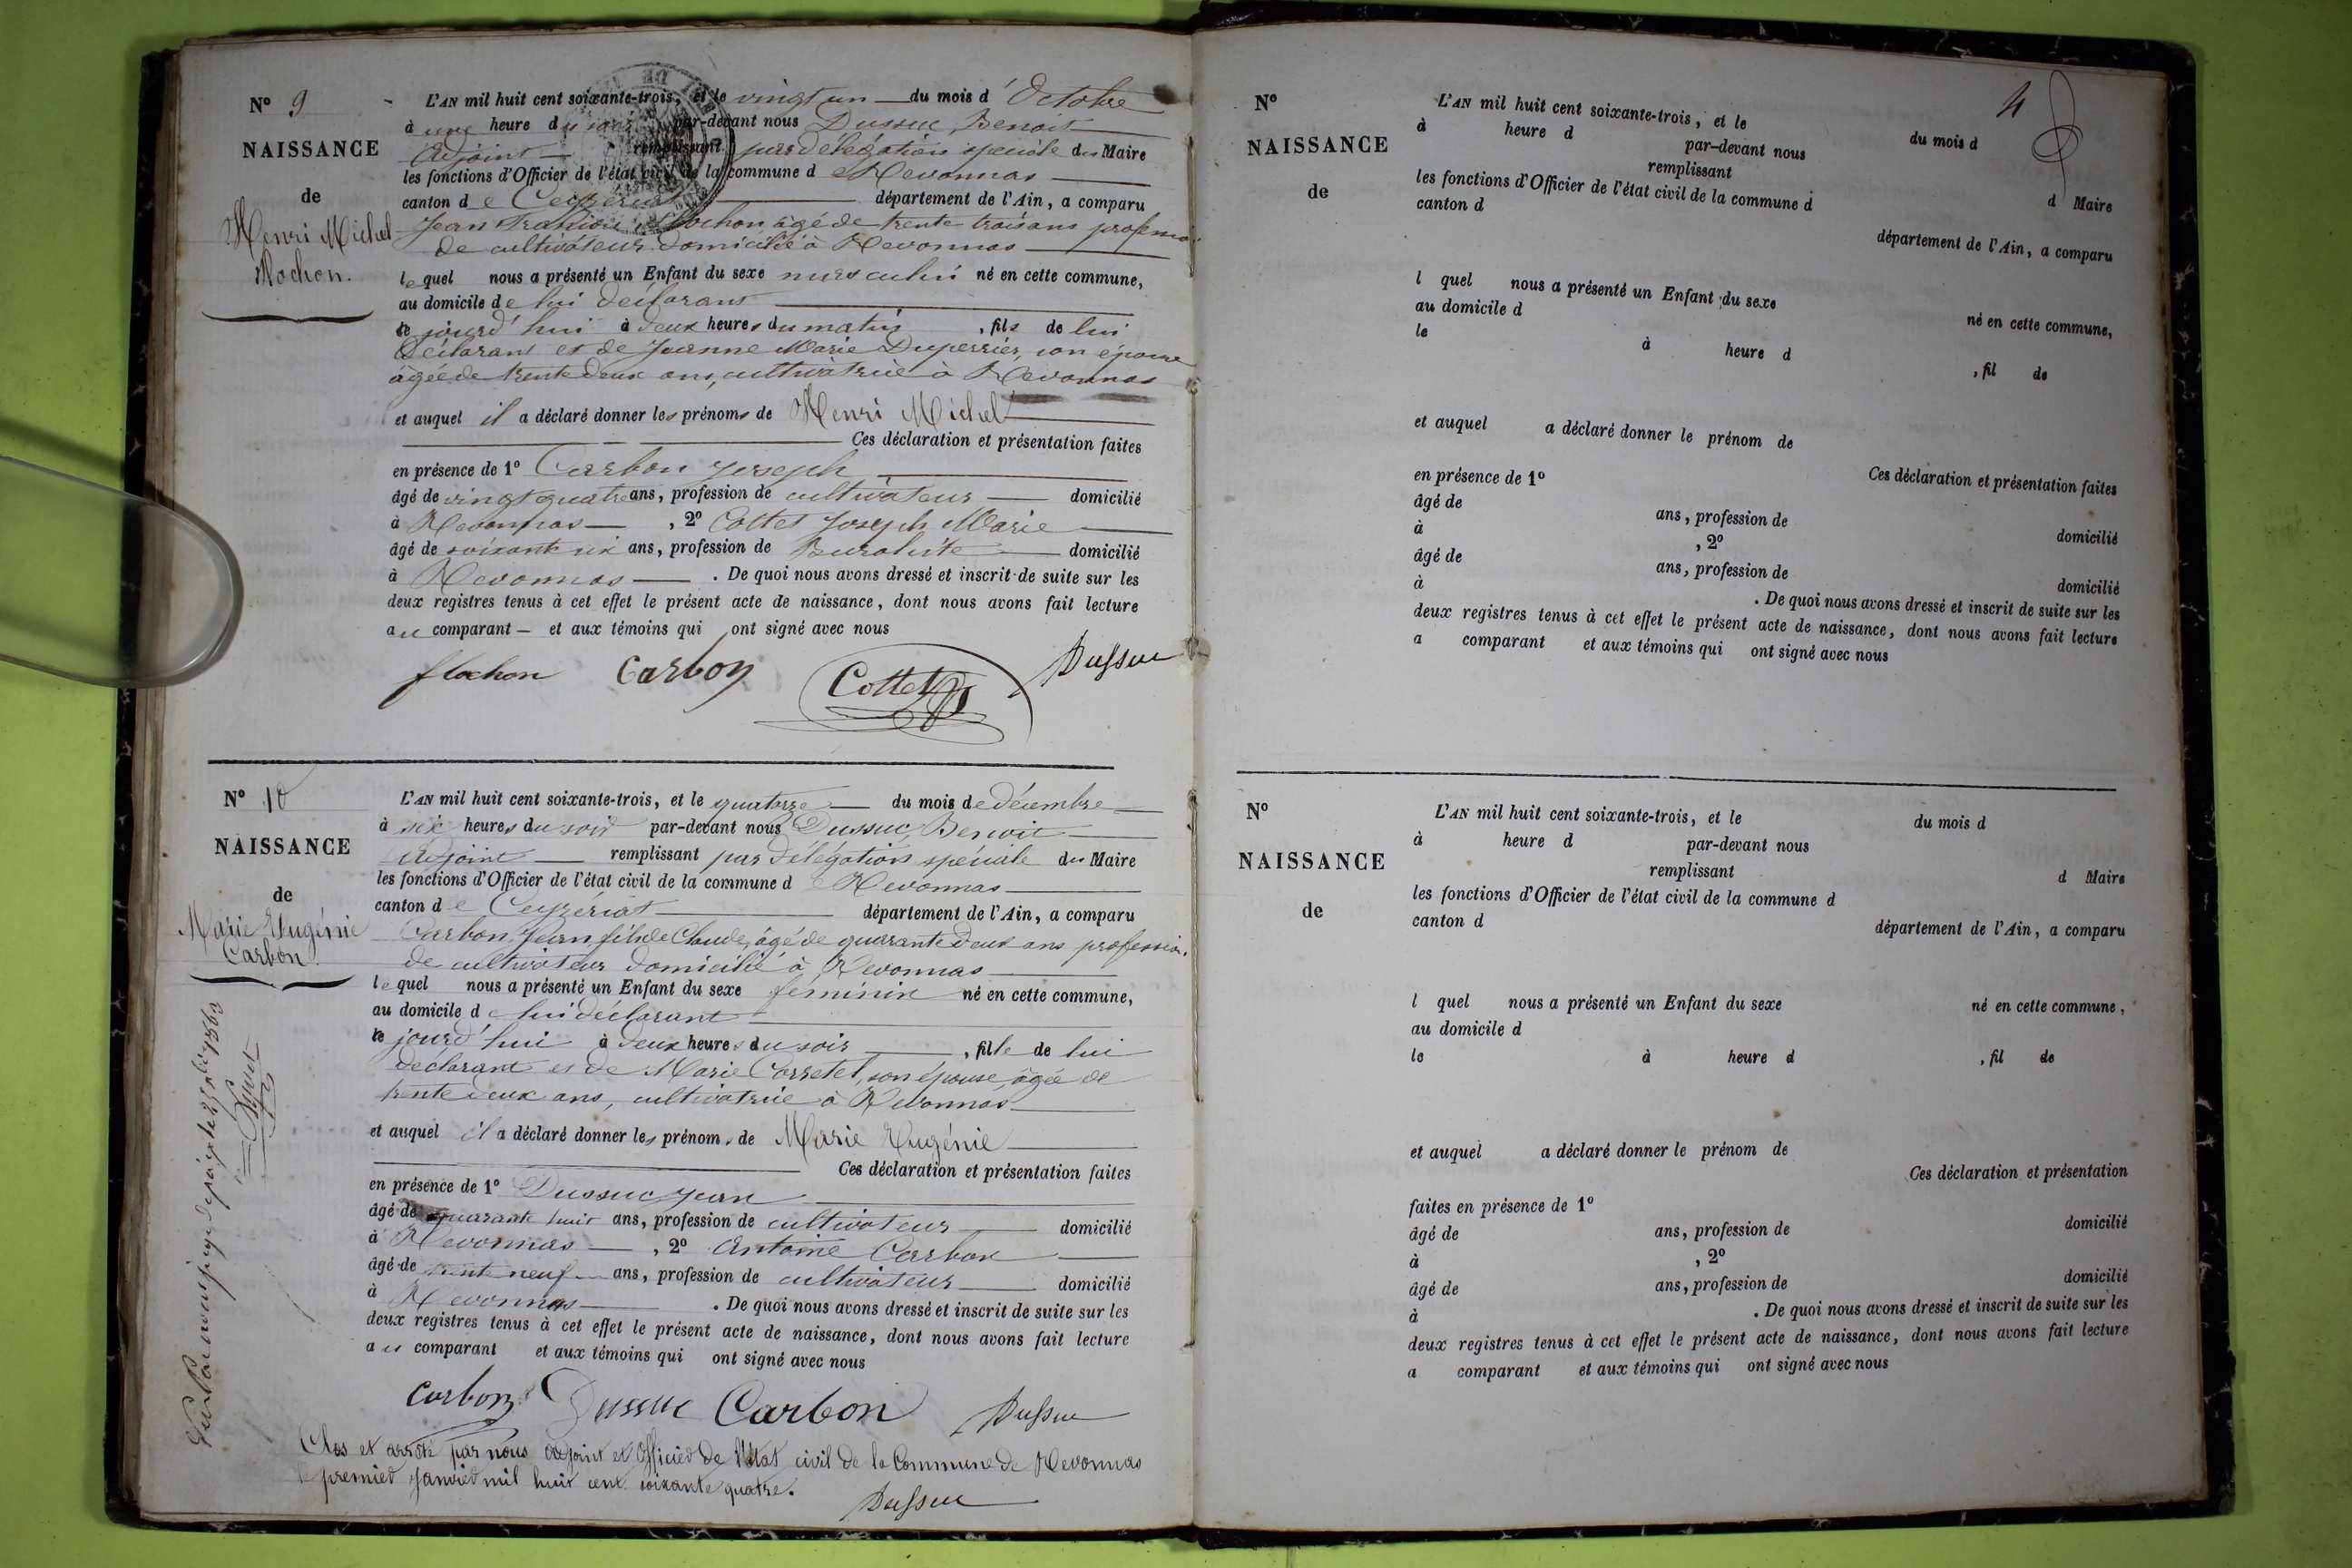 N° 9
NAISSANCE
de
Henri Michel
Rochon.
L'AN mil huit cent soixante-trois, et le vingt un du mois d'Octobre
à une heure du soir par-devant nous Dussuc, Benoit
Adjoint remplissant par délégation spéciale du Maire
les fonctions d'Officier de l'état civil de la commune de Revonnas
canton de Ceyzériat département de l'Ain, a comparu
Jean âgé de trente trois ans profession
de cultivateur domicilié à Revonnas
lequel nous a présenté un Enfant du sexe masculin né en cette commune,
au domicile de lui déclarant
ce jourd'hui à deux heures du matin, fils de lui
Déclarant et de Jeanne Marie Duperrier, son épouse
âgée de trente deux ans, cultivatrice à Revonnas
et auquel il a déclaré donner les prénoms de Henri Michel
Ces déclaration et présentation faites
en présence de 1° Carbon Joseph
âgé de vingt quatre ans, profession de cultivateur domicilié
à Revonnas, 2° Cottet Joseph Marie
âgé de soixante six ans, profession de Buraliste domicilié
à Revonnas. De quoi nous avons dressé et inscrit de suite sur les
deux registres tenus à cet effet le présent acte de naissance, dont nous avons fait lecture
au comparant et aux témoins qui ont signé avec nous
Carbon Cottet Dussuc
N° 10
NAISSANCE
de
Marie Eugénie
Carbon.
L'AN mil huit cent soixante-trois, et le quatorze du mois de décembre
à six heures du soir par-devant nous Dussuc, Benoit
Adjoint remplissant par délégation spéciale du Maire
les fonctions d'Officier de l'état civil de la commune de Revonnas
canton de Ceyzériat département de l'Ain, a comparu
Carbon, Jean fils de Claude, âgé de quarante deux ans profession
de cultivateur domicilié à Revonnas
lequel nous a présenté un Enfant du sexe féminin né en cette commune,
au domicile de lui déclarant
ce jourd'hui à deux heures du soir, fille de lui
déclarant et de Marie Corretel, son épouse, âgée de
trente deux ans, cultivatrice à Revonnas
et auquel il a déclaré donner les prénoms de Marie Eugénie
Ces déclaration et présentation faites
en présence de 1° Dussuc Jean
âgé de quarante huit ans, profession de cultivateur domicilié
à Revonnas, 2° Antoine Carbon
âgé de trente neuf ans, profession de cultivateur domicilié
à Revonnas. De quoi nous avons dressé et inscrit de suite sur les
deux registres tenus à cet effet le présent acte de naissance, dont nous avons fait lecture
au comparant et aux témoins qui ont signé avec nous
Carbon Dussuc Carbon Dussuc
Clos et arrêté par nous adjoint et Officier de l'état civil de la Commune de Revonnas
le premier Janvier mil huit cent soixante quatre.
Dussuc
4
N°
NAISSANCE
de
L'AN mil huit cent soixante-trois, et le du mois d
à heure d par-devant nous
remplissant d Maire
les fonctions d'Officier de l'état civil de la commune d
canton d département de l'Ain, a comparu
l quel nous a présenté un Enfant du sexe né en cette commune,
au domicile d
le à heure d , fil de
et auquel a déclaré donner le prénom de
Ces déclaration et présentation faites
en présence de 1°
âgé de ans, profession de domicilié
à , 2°
âgé de ans, profession de domicilié
à . De quoi nous avons dressé et inscrit de suite sur les
deux registres tenus à cet effet le présent acte de naissance, dont nous avons fait lecture
a comparant et aux témoins qui ont signé avec nous
N°
NAISSANCE
de
L'AN mil huit cent soixante-trois, et le du mois d
à heure d par-devant nous
remplissant d Maire
les fonctions d'Officier de l'état civil de la commune d
canton d département de l'Ain, a comparu
l quel nous a présenté un Enfant du sexe né en cette commune,
au domicile d
le à heure d , fil de
et auquel a déclaré donner le prénom de
Ces déclaration et présentation
faites en présence de 1°
âgé de ans, profession de domicilié
à , 2°
âgé de ans, profession de domicilié
à . De quoi nous avons dressé et inscrit de suite sur les
deux registres tenus à cet effet le présent acte de naissance, dont nous avons fait lecture
a comparant et aux témoins qui ont signé avec nous